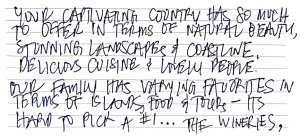 YOUR CAPTIVATING COUNTRY HAS SO MUCH
TO OFFER IN TERMS OF NATURAL BEAUTY,
STUNNING LANDSCAPES & COASTLINE,
DELICIOUS CUISINE & LOVELY PEOPLE.
OUR FAMILY HAS VARYING FAVORITES IN
TERMS OF ISLANDS, FOOD & TOURS - ITS
HARD TO PICK A #1... THE WINERIES,